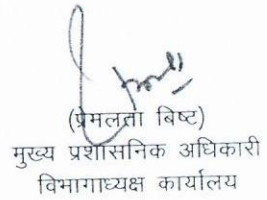 (प्रेमलता बिष्ट)
मुख्य प्रशासनिक अधिकारी
विभागाध्यक्ष कार्यालय